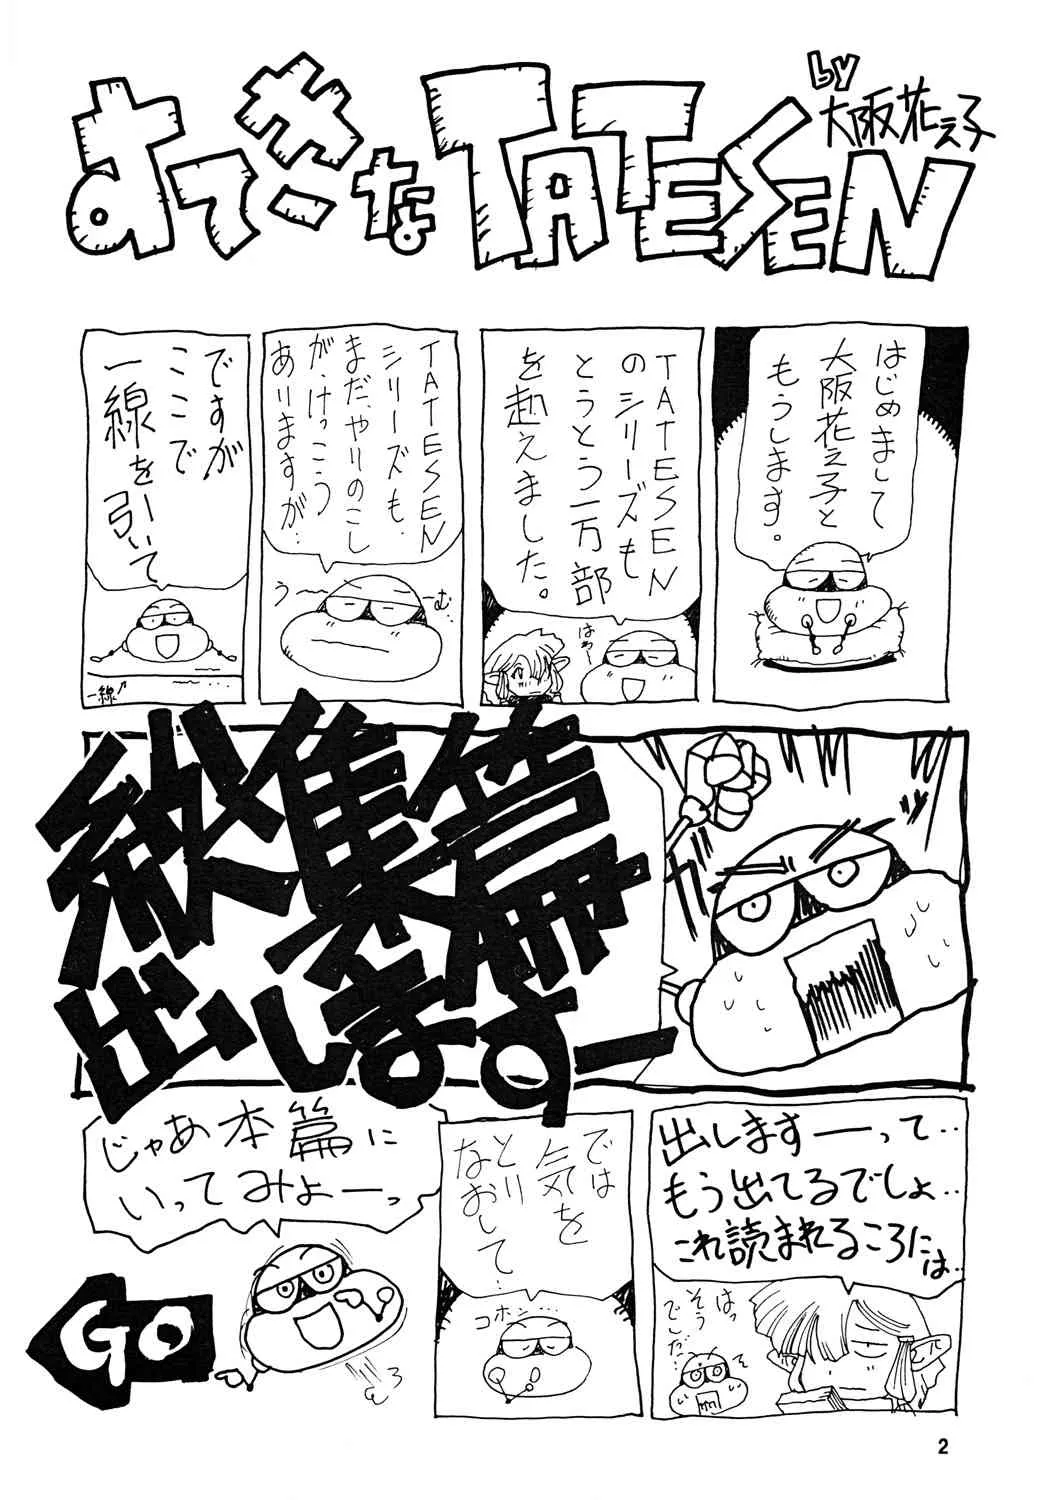 すてきなTATESEN
by
大阪花え子
はじめまして
大阪花え子と
もうします。
TATESEN
のシリーズも
とうとう一万部
を越えました。
はぁー
TATESEN
シリーズも、
まだ、やりのこし
が、けっこう
ありますが‥
うーーーむ…
ですが
ここで
一線を引いて
一線↗
総集篇
出しますー
出しますーーって‥
もう出てるでしょ‥
これ読まれるころには‥
はっ
そう
でした‥
では
気を
とり
なおして‥
コホン…
じゃあ本篇に
いってみよーっ
GO
2